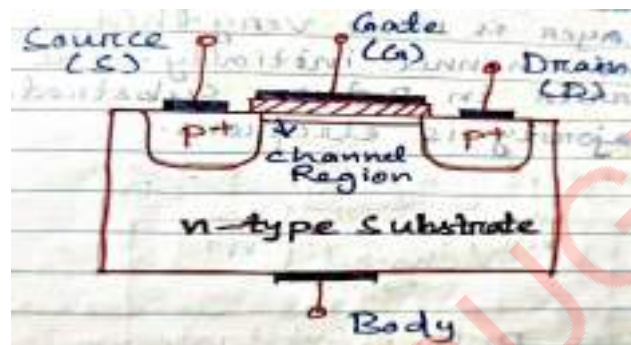 Source
(S)
Gate
(G)
Drain
(D)
p+
p+
Channel
Region
n-type Substrate
Body
UG